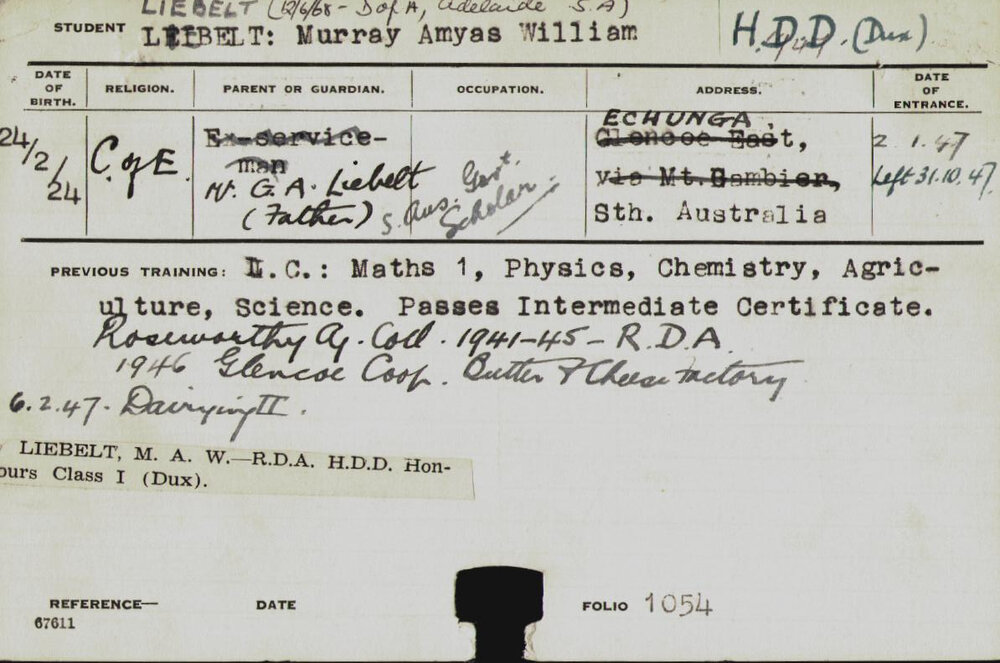 LIEBELT (12/6/68 - D of A, Adelaide S.A)
STUDENT LIEBELT: Murray Amyas William H.D.D. (Dux)
DATE OF BIRTH. RELIGION. PARENT OR GUARDIAN. OCCUPATION. ADDRESS. DATE OF ENTRANCE.
24/2/24
C of E.
Ex-service-
man
Mr. G. A. Liebelt
(Father)
S. Aus. Govt.
Scholar
ECHUNGA.
Glencoe East,
via Mt. Gambier,
Sth. Australia
2.1.47
Left 31.10.47.
PREVIOUS TRAINING: L.C.: Maths 1, Physics, Chemistry, Agric-
ulture, Science. Passes Intermediate Certificate.
Roseworthy Ag. Coll. 1941-45 - R.D.A.
1946 Glencoe Coop. Butter & Cheese Factory
6.2.47. Dairying II.
LIEBELT, M. A. W.—R.D.A. H.D.D. Hon-
ours Class I (Dux).
REFERENCE— DATE FOLIO 1054
67611